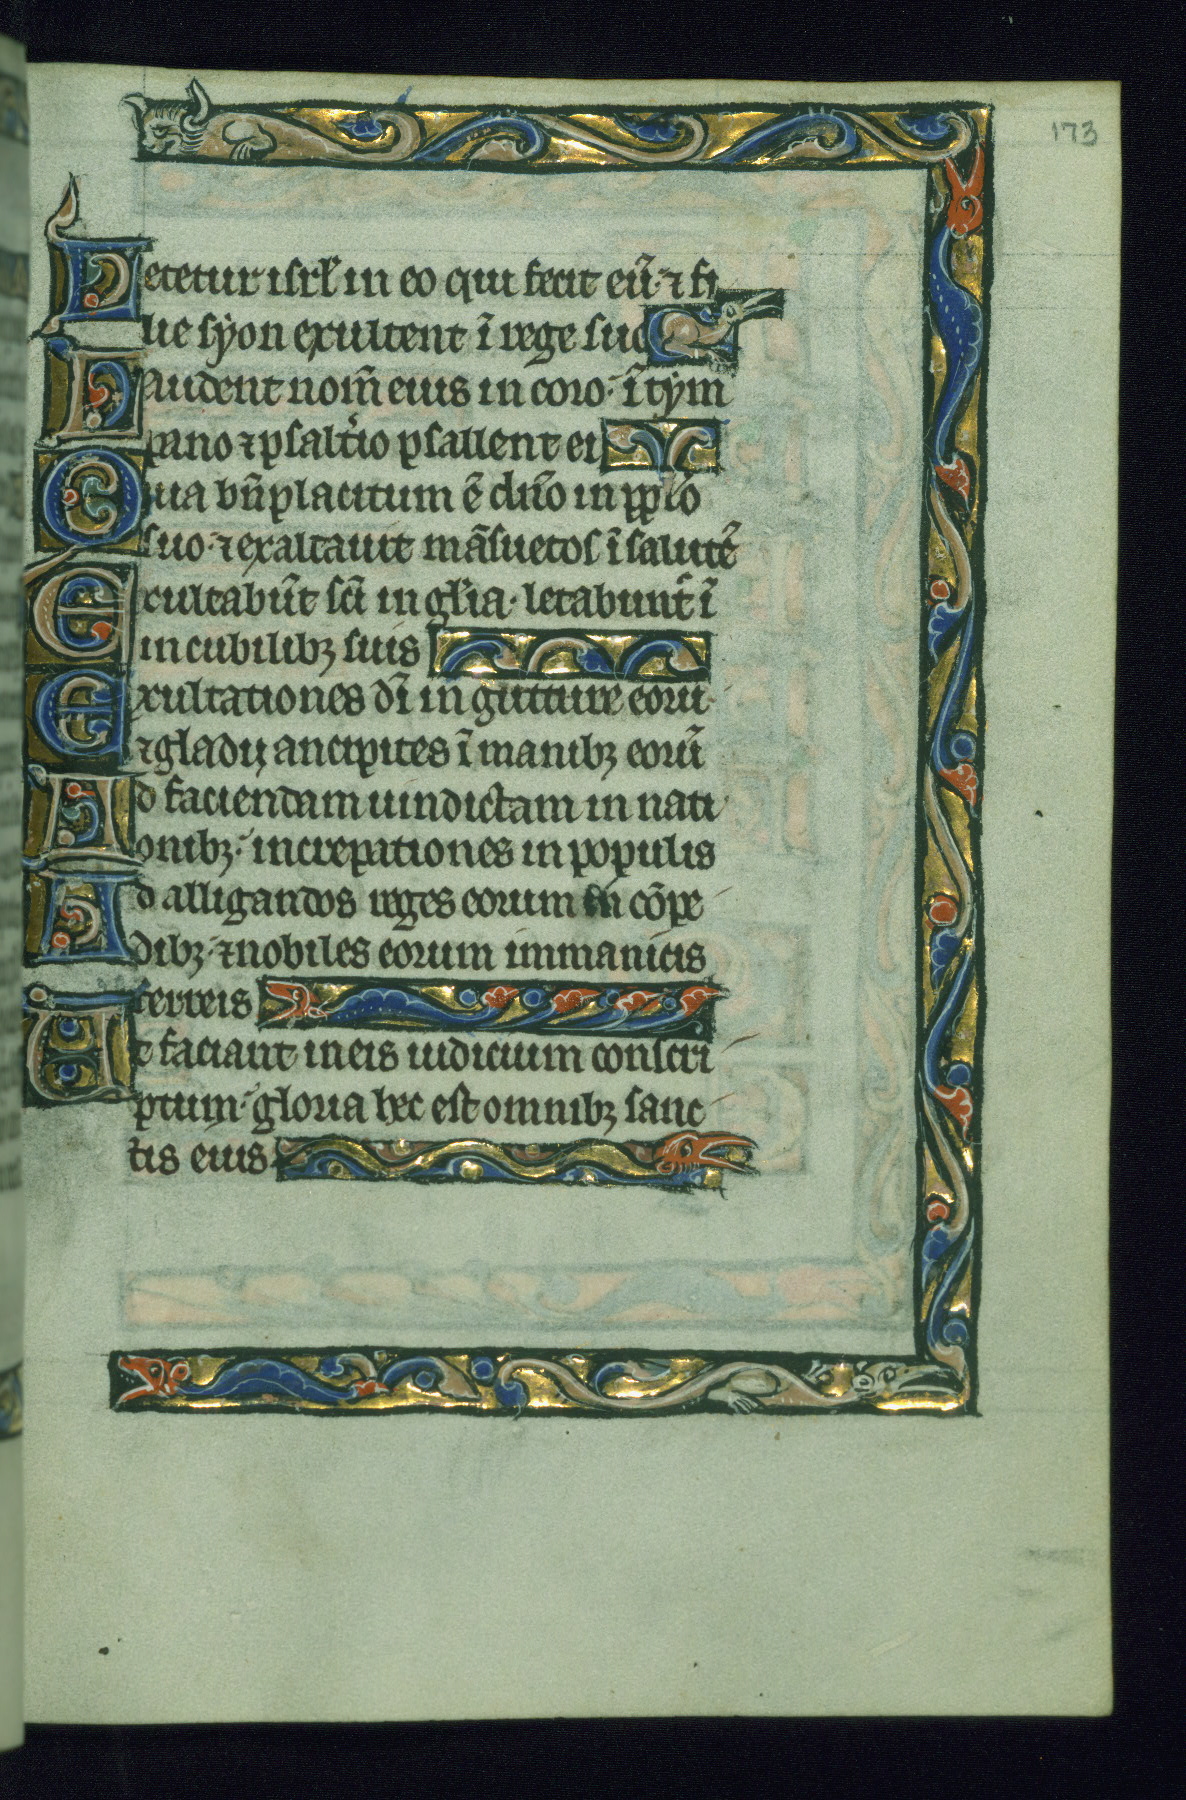 173
Letetur isrł in eo qui fecit eū · ⁊ fi
lie sẏon exultent ī rege suo
Laudent nom̄ eius in coro · ī tẏm
pano ⁊ psalt̓io psallent ei
Quia bn̄placitum ē dn̄o in pplo
suo · ⁊ exaltauit māsuetos ī salutē
Exultabūt sc̄i in gl̓ia · letabunt᷑ ī
in cubilibꝫ suis
Exultationes dī in gutture eoru ·
⁊ gladij ancipites ī manibꝫ eorū
Ad faciendam uindictam in nati
onibꝫ · increpationes in populis
Ad alligandos reges eorum in cōpe
dibꝫ · ⁊ nobiles eorum in manicis
ferreis
Ut faciant in eis iudicium conscri
ptum · gloria hec est omnibꝫ sanc
tis eius